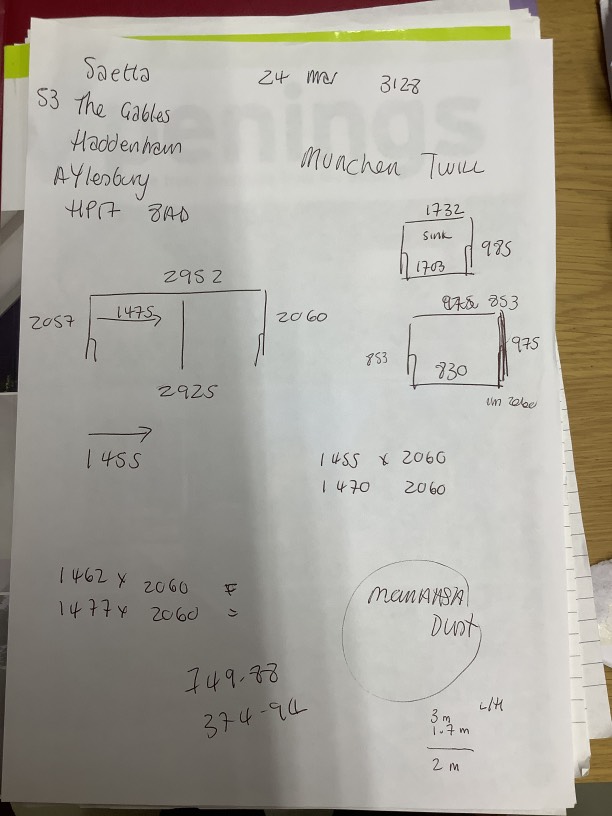 Saetta
24 mar 3128
53 The Gables
Haddenham
Aylesbury
HP17 8AD
Munchen Twill
1732
sink
985
1703
2952
2057
1475
2060
2925
853
975
853
830
1455
1455 x 2060
1470 2060
1462 x 2060 =
1477 x 2060 =
Dust
749.88
374-94
L/H
3m
1.7m
2m
enings